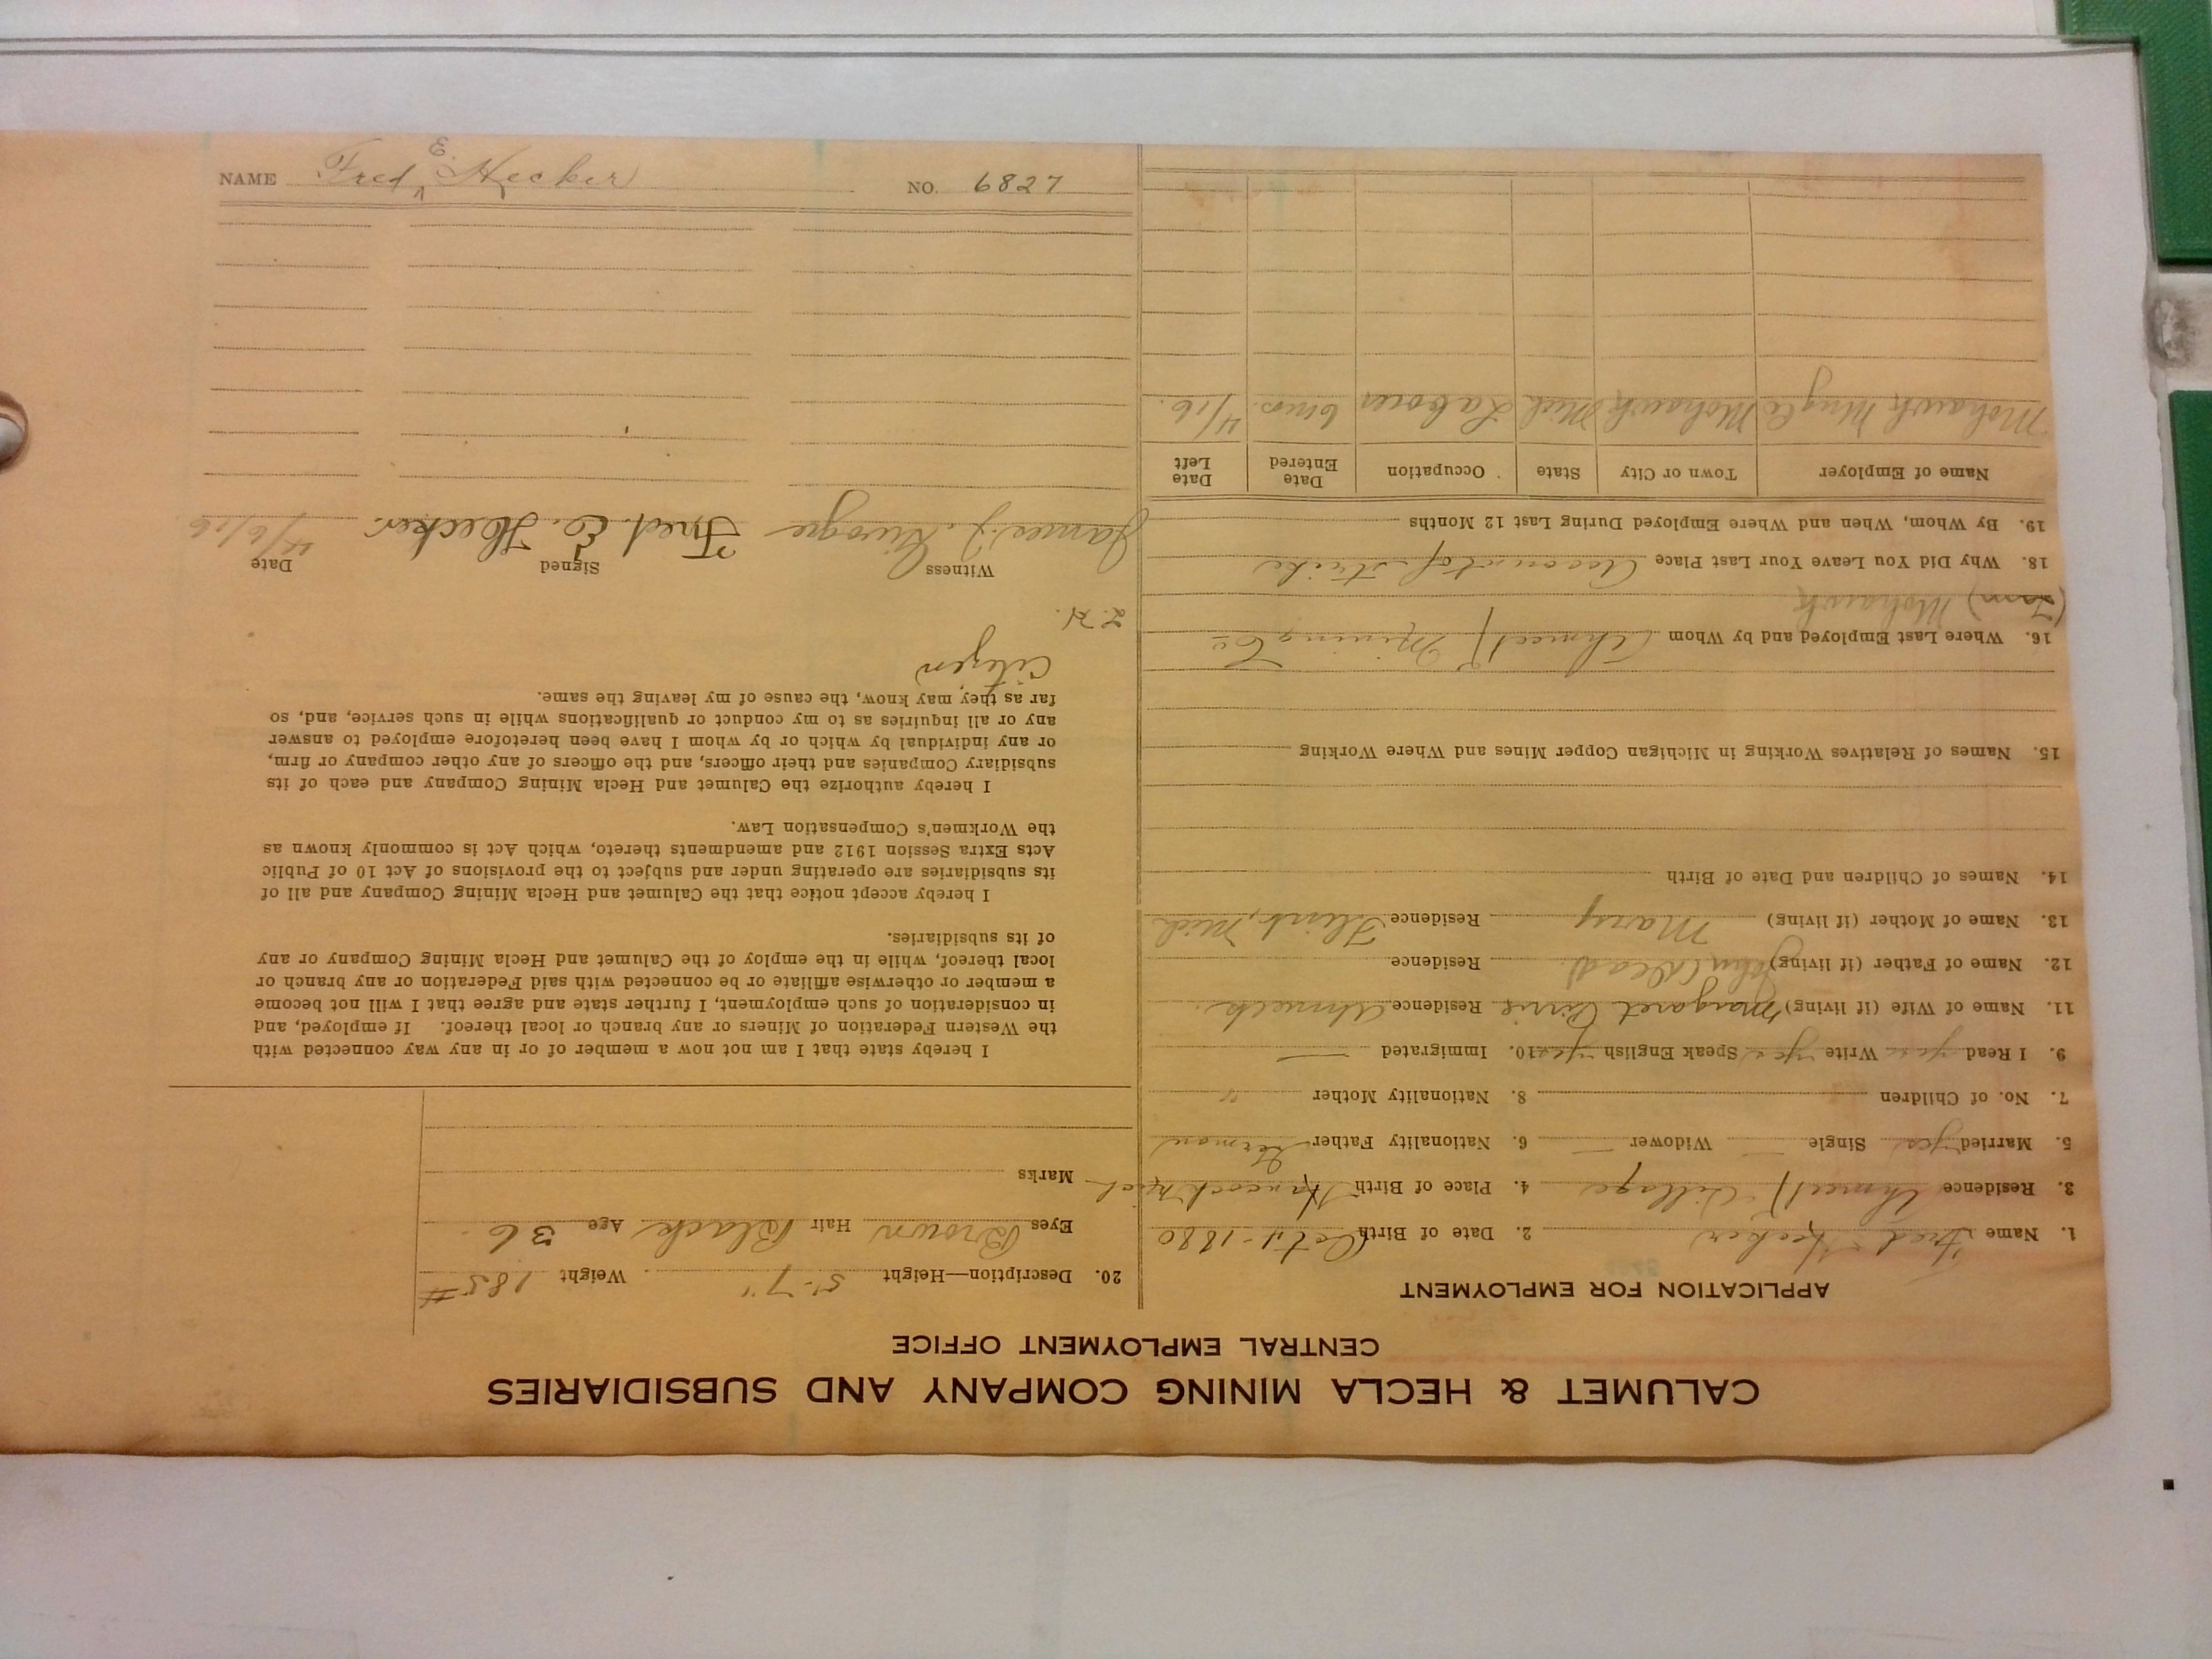 CALUMET & HECLA MINING COMPANY AND SUBSIDIARIES
CENTRAL EMPLOYMENT OFFICE
APPLICATION FOR EMPLOYMENT
1. Name Fred Hecker 2. Date of Birth Oct 1-1880
3. Residence Ahmeek Village 4. Place of Birth Hancock Mich
5. Married yes Single Widower 6. Nationality Father German
7. No. of Children 8. Nationality Mother "
9. I Read yes Write yes Speak English yes 10. Immigrated —
11. Name of Wife (if living) Margaret Residence Ahmeek
12. Name of Father (if living) John (Dead). Residence
13. Name of Mother (if living) Mary Residence Flint, Mich
14. Names of Children and Date of Birth
15. Names of Relatives Working in Michigan Copper Mines and Where Working
16. Where Last Employed and by Whom Ahmeek Mining Co
Mohawk
18. Why Did You Leave Your Last Place Account of strike
19. By Whom, When and Where Employed During Last 12 Months
Name of Employer Town or City State Occupation Date Entered Date Left
Mohawk Mng Co Mohawk Mich Laborer 6 mos. 4/16.
20. Description—Height 5'-7" Weight 185#
Eyes Brown Hair Black Age 36
Marks
I hereby state that I am not now a member of or in any way connected with
the Western Federation of Miners or any branch or local thereof. If employed, and
in consideration of such employment, I further state and agree that I will not become
a member or otherwise affiliate or be connected with said Federation or any branch or
local thereof, while in the employ of the Calumet and Hecla Mining Company or any
of its subsidiaries.
I hereby accept notice that the Calumet and Hecla Mining Company and all of
its subsidiaries are operating under and subject to the provisions of Act 10 of Public
Acts Extra Session 1912 and amendments thereto, which Act is commonly known as
the Workmen's Compensation Law.
I hereby authorize the Calumet and Hecla Mining Company and each of its
subsidiary Companies and their officers, and the officers of any other company or firm,
or any individual by which or by whom I have been heretofore employed to answer
any or all inquiries as to my conduct or qualifications while in such service, and, so
far as they may know, the cause of my leaving the same.
Citizen
Witness Signed Date
James J. Fred. E. Hecker. 4/6/16
NAME Fred E. Hecker NO. 6827